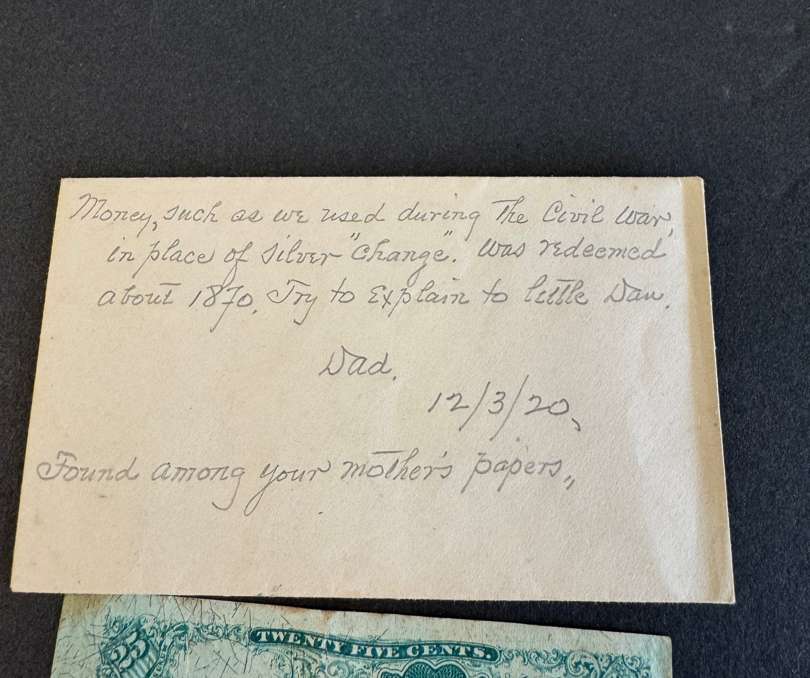 Money, such as we used during the Civil War,
in place of silver "change". Was redeemed
about 1870. Try to explain to little Dan.
Dad.
12/3/20,
Found among your mother's papers,,
TWENTY FIVE CENTS.
25